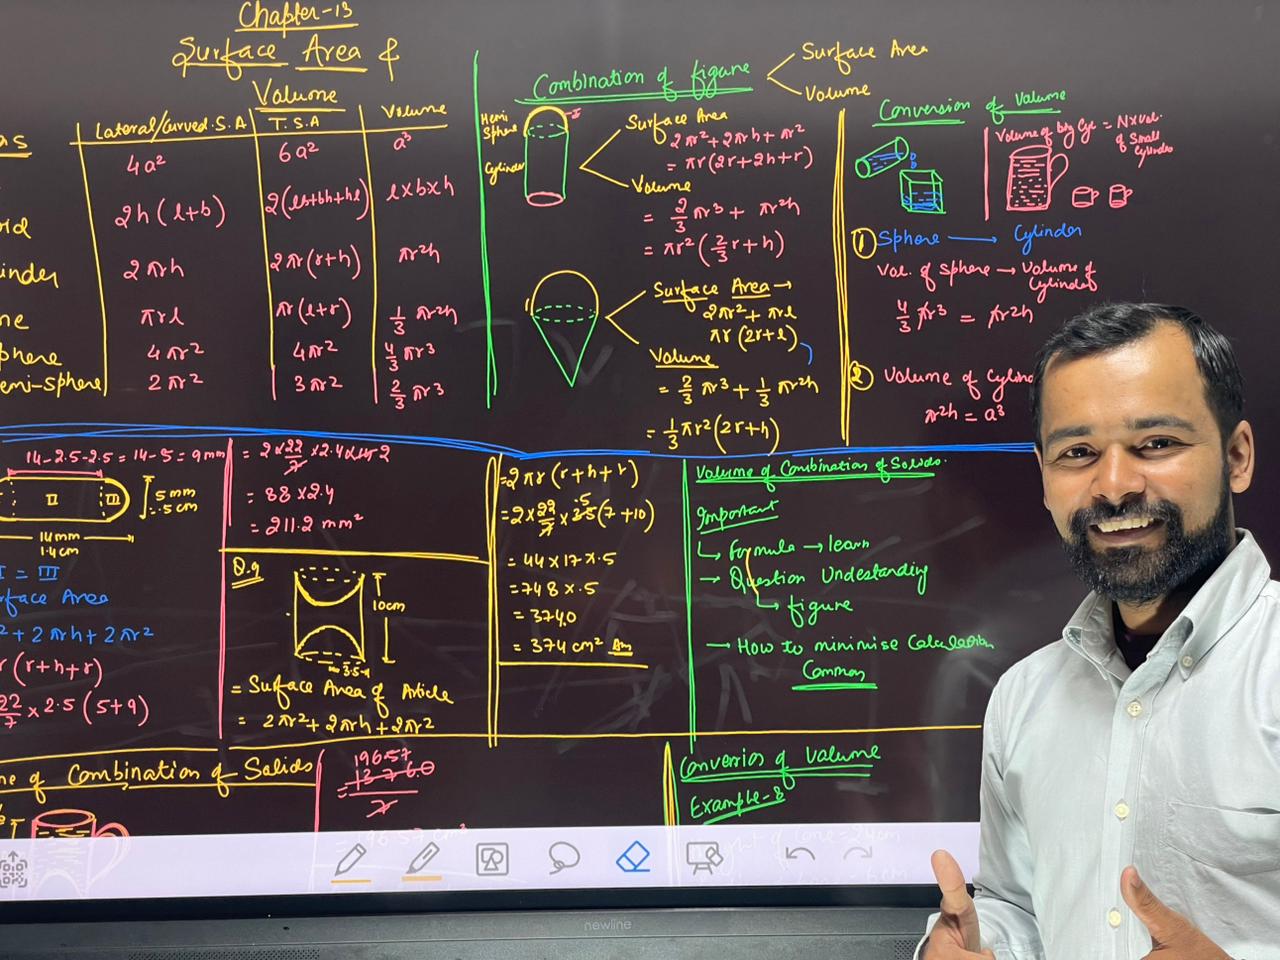 Chapter-13
Surface Area &
Volume
Lateral/Curved.S.A T.S.A Volume
4a² 6a² a³
2h(l+b) 2(lb+bh+hl) l×b×h
2πrh 2πr(r+h) πr²h
πrl πr(l+r) 1/3 πr²h
4πr² 4πr² 4/3 πr³
emi-sphere 2πr² 3πr² 2/3 πr³
Combination of figure
Surface Area
Volume
Hemi
Sphere
Cylinder
Surface Area
2πr²+2πrh+πr²
=πr(2r+2h+r)
Volume
= 2/3 πr³ + πr²h
= πr²(2/3 r+h)
Surface Area→
2πr²+πrl
πr(2r+l)
Volume
= 2/3 πr³ + 1/3 πr²h
= 1/3 πr²(2r+h)
Conversion of Volume
Volume of big Cyl = N×vol.
of Small
Cylinder
① Sphere → Cylinder
Vol. of sphere → Volume of
Cylinder
4/3 πr³ = πr²h
② Volume of Cylin
πr²h = a³
14-2.5-2.5 = 14-5 = 9mm
II III
5mm
.5cm
14mm
1.4cm
I = III
rface Area
²+2πrh+2πr²
r(r+h+r)
22/7 × 2.5(5+9)
= 88×2.4
= 211.2 mm²
Q.9
10cm
3.5
= Surface Area of Article
= 2πr²+2πrh+2πr²
=2πr(r+h+r)
=2×22/7×3.5(7+10)
=44×17×.5
=748×.5
=374.0
= 374 cm² Ans
Volume of Combination of Solids.
Important
Formula → learn
→ Question Undestanding
figure
→ How to minimise Calculation
Common
me of Combination of Solids
196.57
1376.0
7
Conversion of Volume
Example-8
newline